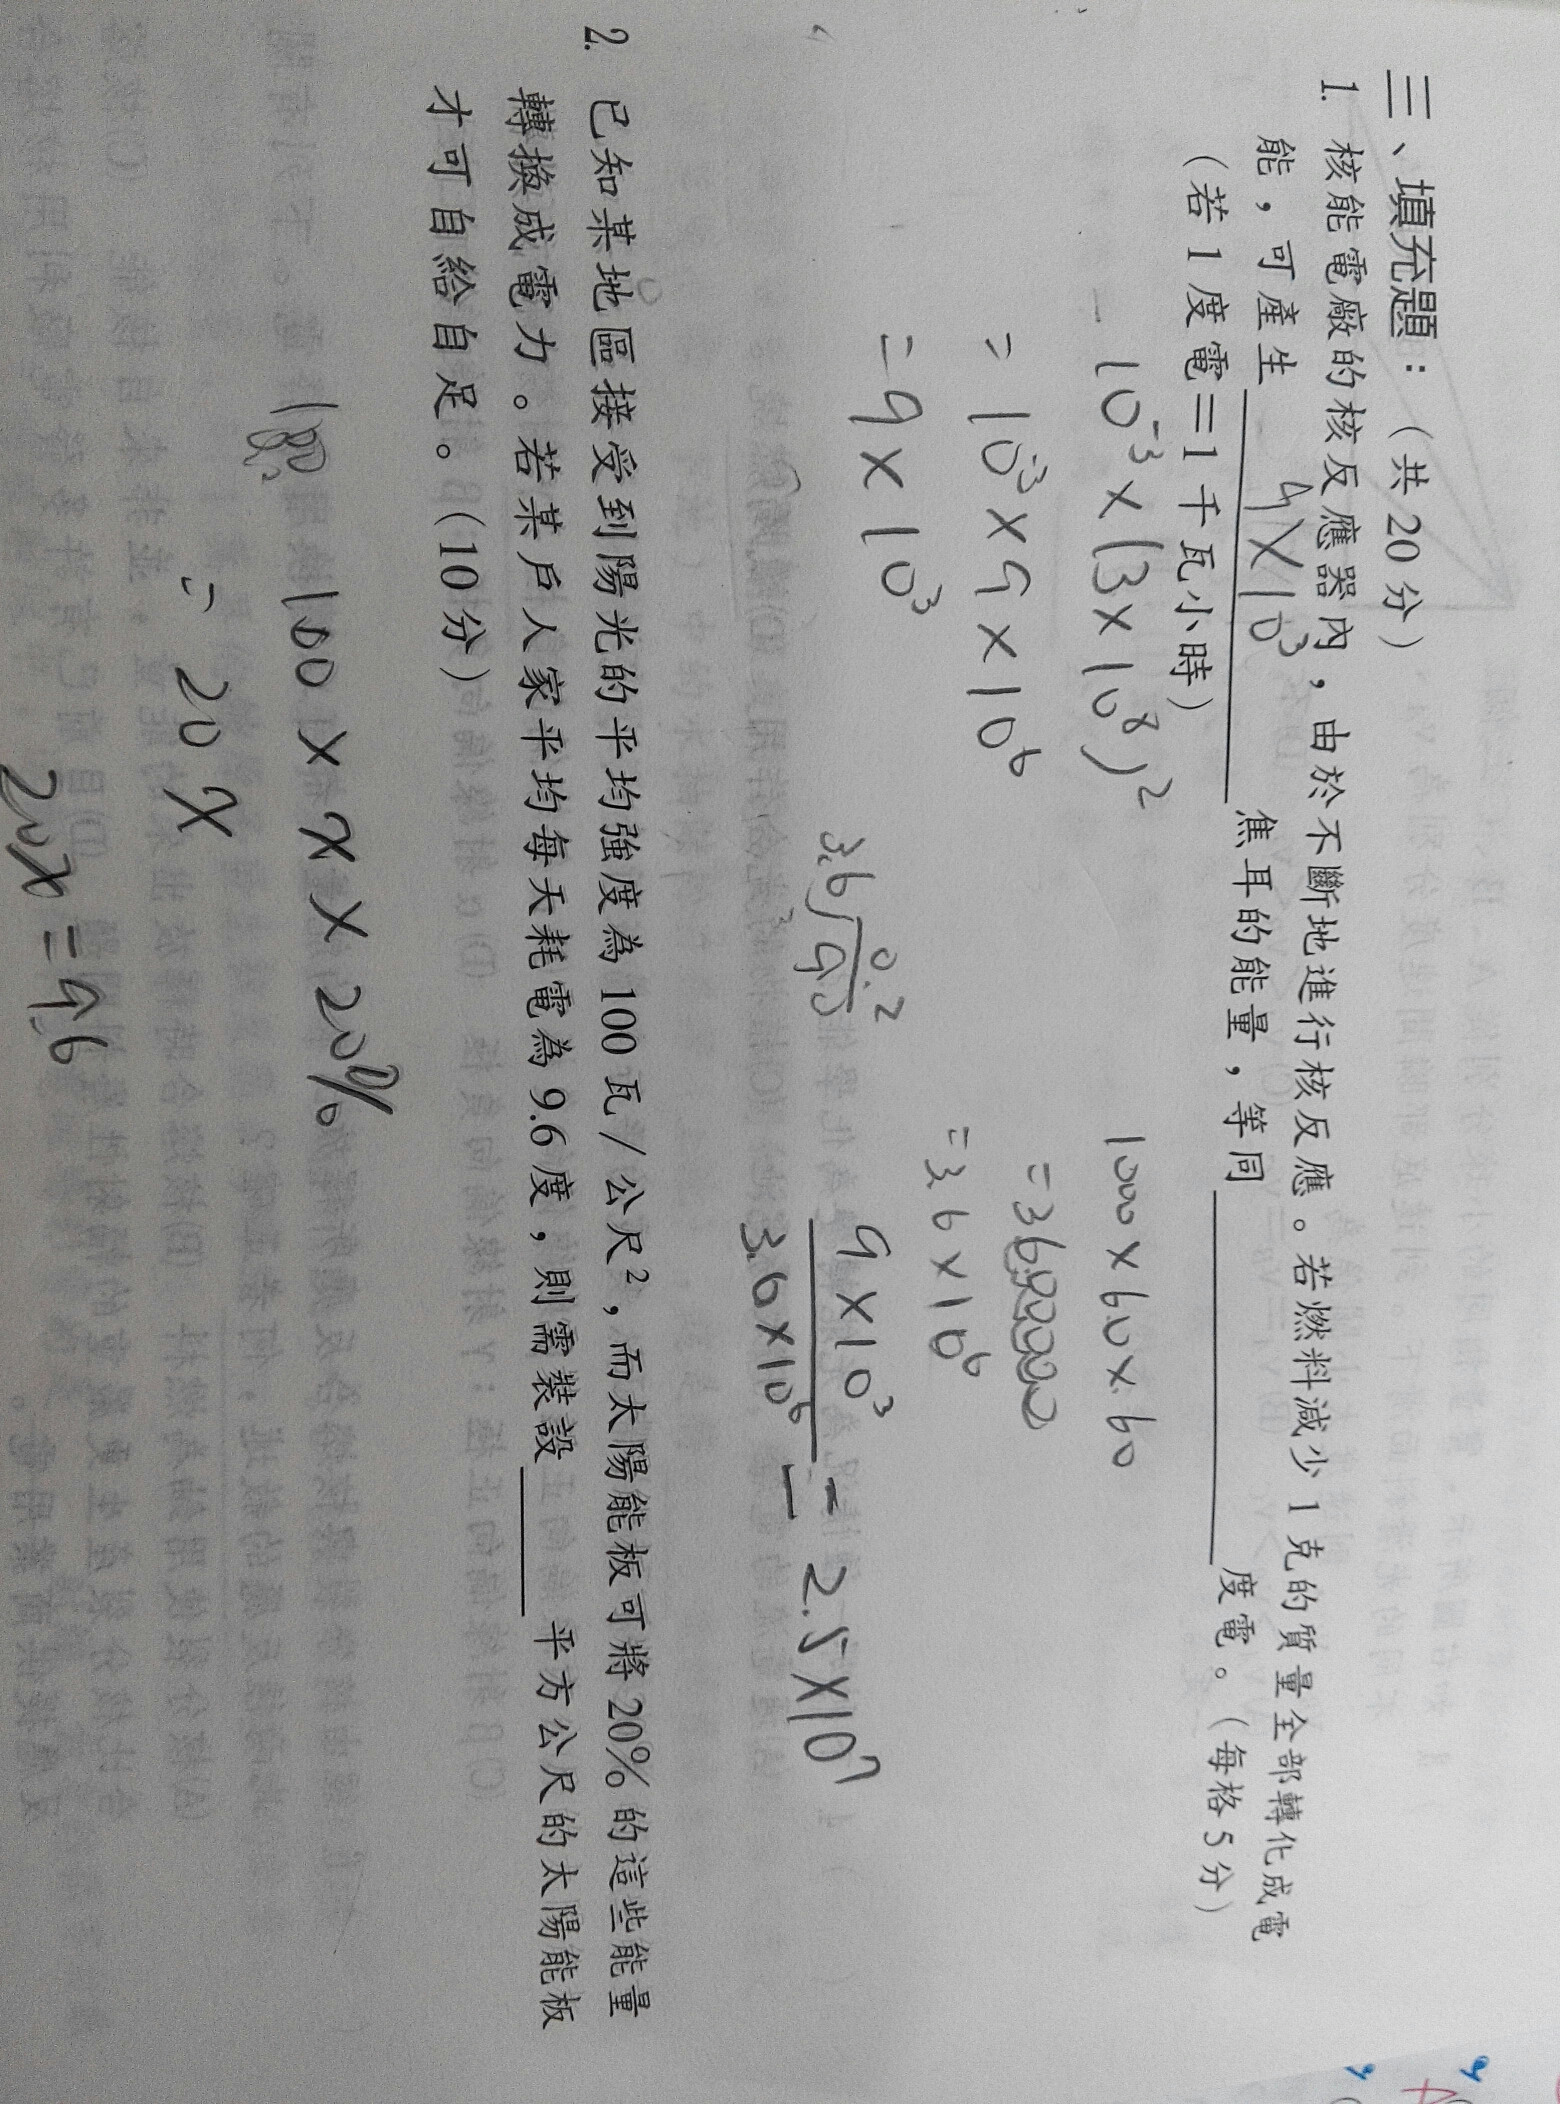 三、填充題：（共 20 分）
1. 核能電廠的核反應器內，由於不斷地進行核反應。若燃料減少 1 克的質量全部轉化成電
能，可產生 9×10³ 焦耳的能量，等同＿＿＿＿＿＿度電。（每格 5 分）
（若 1 度電＝1 千瓦小時）
10⁻³×(3×10⁸)²
=10⁻³×9×10⁶
=9×10³
1000×60×60
=3600000
=3.6×10⁶
0.2
3.6 9.0
9×10³
3.6×10⁶
= 2.5×10⁷
2. 已知某地區接受到陽光的平均強度為 100 瓦/公尺²，而太陽能板可將 20%的這些能量
轉換成電力。若某戶人家平均每天耗電為 9.6 度，則需裝設＿＿＿＿平方公尺的太陽能板
才可自給自足。（10 分）
100 × x × 20%
= 20x
20x=9.6